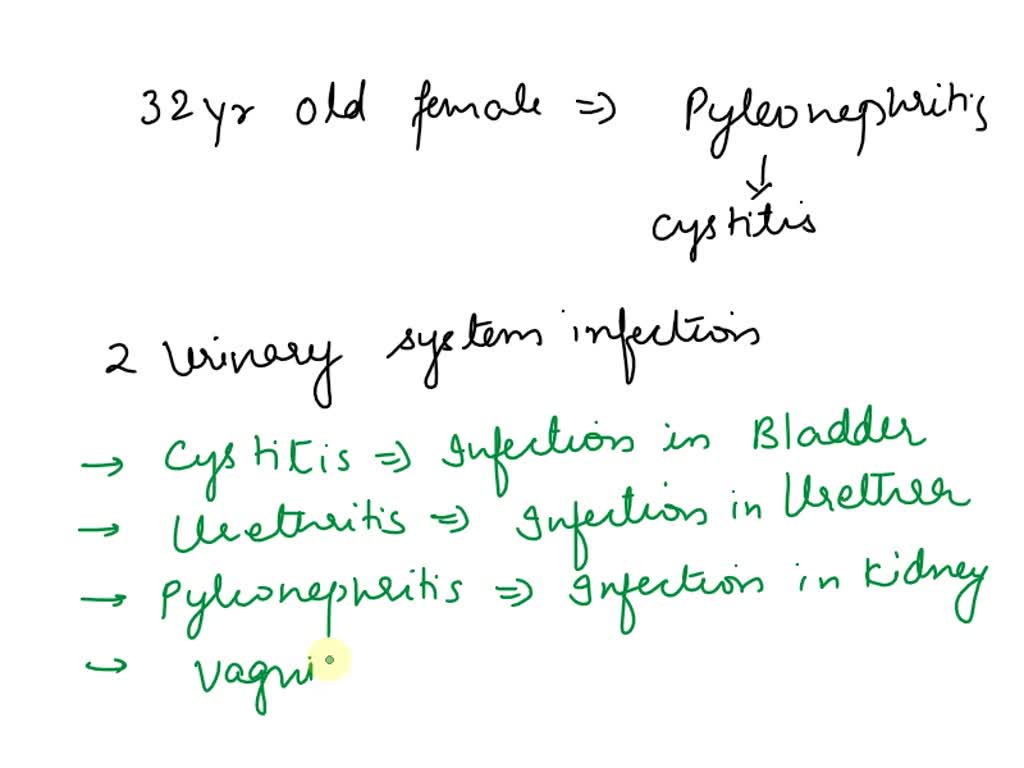 32yr old female => Pyleonephritis
↓
cystitis
2 Urinary system infection
→ Cystitis => Infection in Bladder
→ Urethritis => Infection in Urethrer
→ Pyleonephritis => Infection in Kidney
→ Vagni